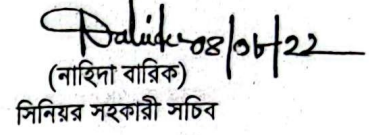 08/০৮/22
(নাহিদা বারিক)
সিনিয়র সহকারী সচিব